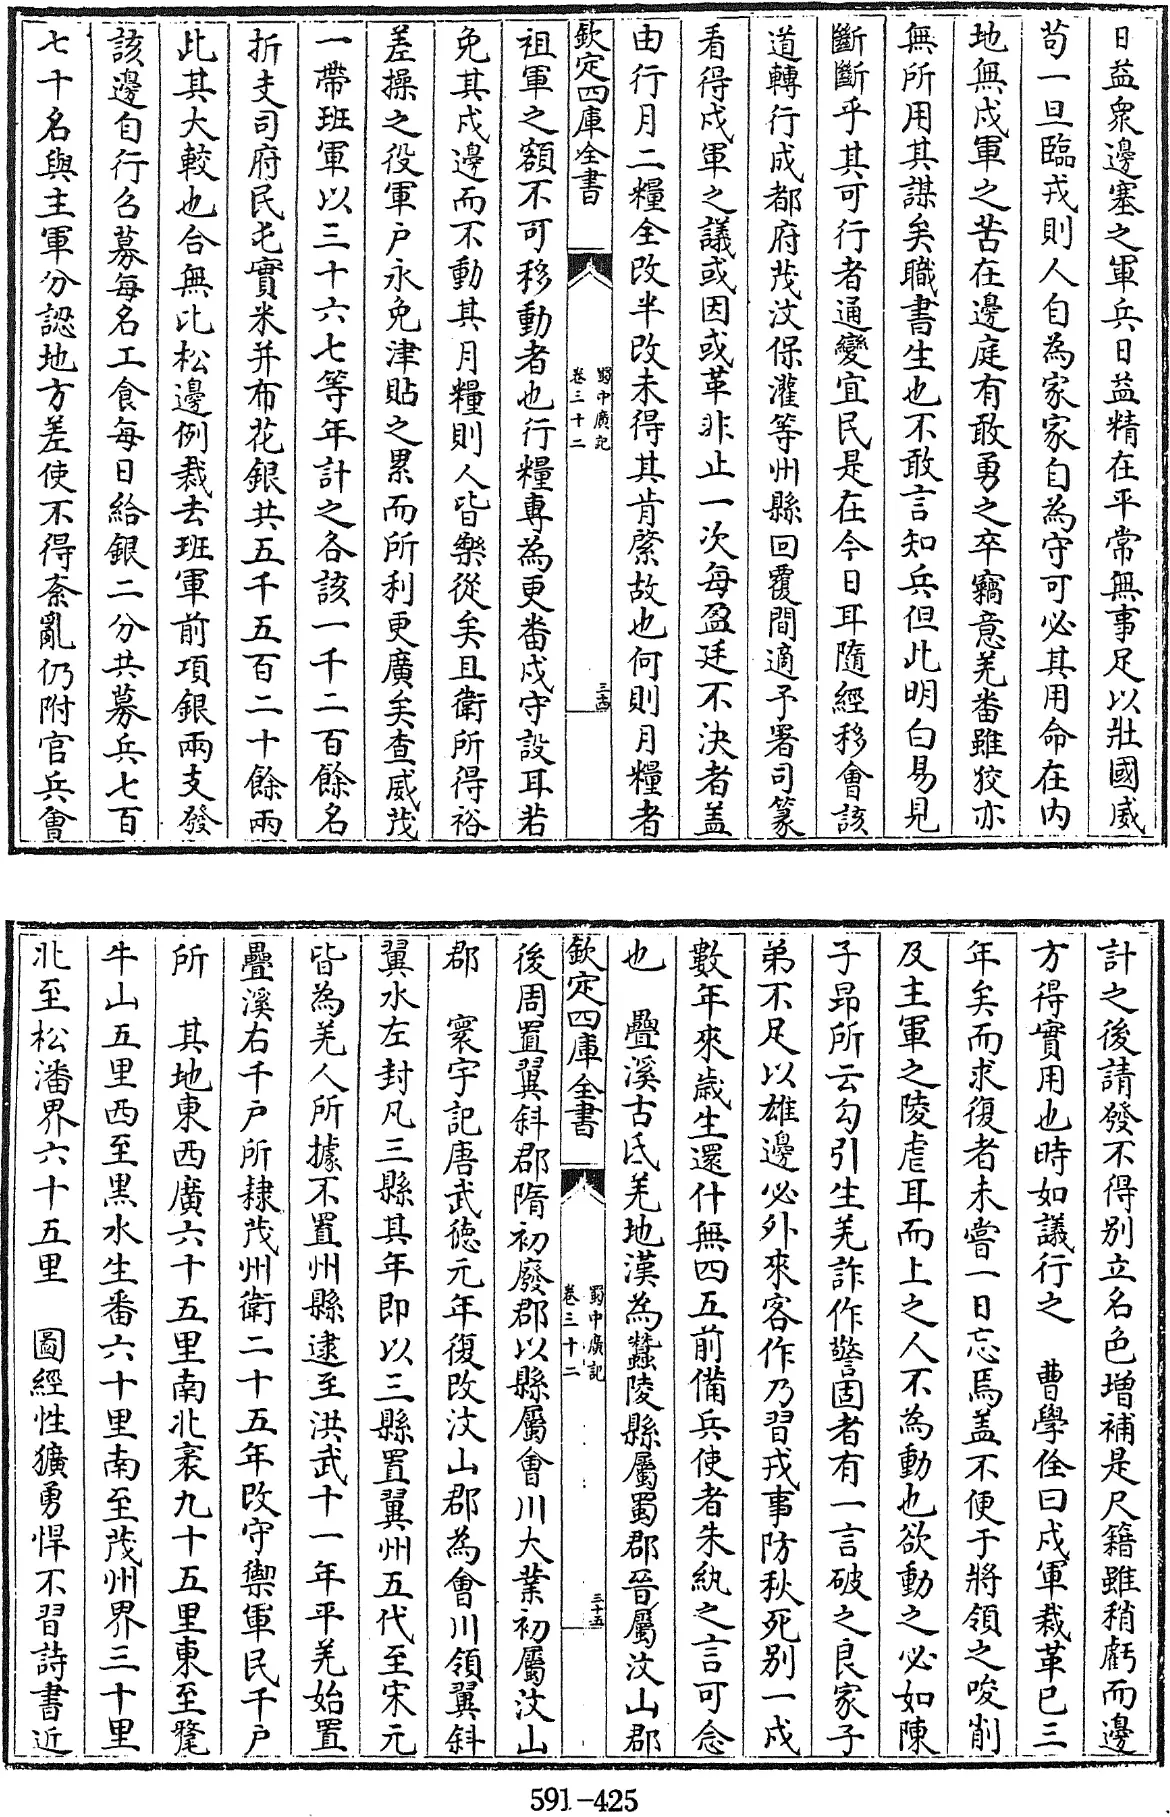 日益衆邊塞之軍兵日益精在平常無事足以壯國威
苟一旦臨戎則人自為家家自為守可必其用命在内
地無戍軍之苦在邊庭有敢勇之卒竊意羌番雖狡亦
無所用其謀矣職書生也不敢言知兵但此明白易見
斷斷乎其可行者通變宜民是在今日耳隨經移會該
道轉行成都府茂汶保灌等州縣回覆間適予署司篆
看得戍軍之議或因或革非止一次每盈廷不決者盖
由行月二糧全改半改未得其肯綮故也何則月糧者
欽定四庫全書
蜀中廣記
卷三十二
三十四
祖軍之額不可移動者也行糧專為更番戍守設耳若
免其戍邊而不動其月糧則人皆樂從矣且衛所得裕
差操之役軍户永免津貼之累而所利更廣矣查威茂
一帶班軍以三十六七等年計之各該一千二百餘名
折支司府民屯實米并布花銀共五千五百二十餘兩
此其大較也合無比松邊例裁去班軍前項銀兩支發
該邊自行召募每名工食每日給銀二分共募兵七百
七十名與主軍分認地方差使不得紊亂仍附官兵會
計之後請發不得别立名色增補是尺籍雖稍虧而邊
方得實用也時如議行之　曹學佺曰戍軍裁革已三
年矣而求復者未嘗一日忘焉盖不便于將領之唆削
及主軍之陵虐耳而上之人不為動也欲動之必如陳
子昂所云勾引生羌詐作警固者有一言破之良家子
弟不足以雄邊必外來客作乃習戎事防秋死别一戍
數年來歲生還什無四五前備兵使者朱紈之言可念
也　疊溪古氐羌地漢為蠶陵縣屬蜀郡晉屬汶山郡
欽定四庫全書
蜀中廣記
卷三十二
三十五
後周置翼斜郡隋初廢郡以縣屬會川大業初屬汶山
郡　寰宇記唐武德元年復改汶山郡為會川領翼斜
翼水左封凡三縣其年即以三縣置翼州五代至宋元
皆為羌人所據不置州縣逮至洪武十一年平羌始置
疊溪右千户所隸茂州衛二十五年改守禦軍民千户
所　其地東西廣六十五里南北袤九十五里東至氂
牛山五里西至黑水生番六十里南至茂州界三十里
北至松潘界六十五里　圖經性獷勇悍不習詩書近
591-425